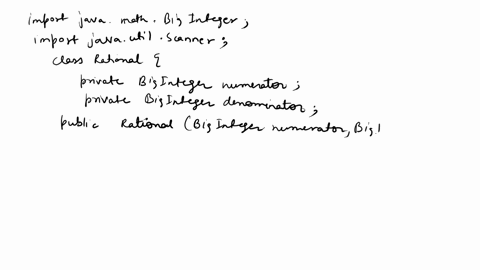 import java.math.BigInteger;
import java.util.Scanner;
class Rational {
private BigInteger numerator;
private BigInteger denominator;
public Rational (BigInteger numerator, Big.I